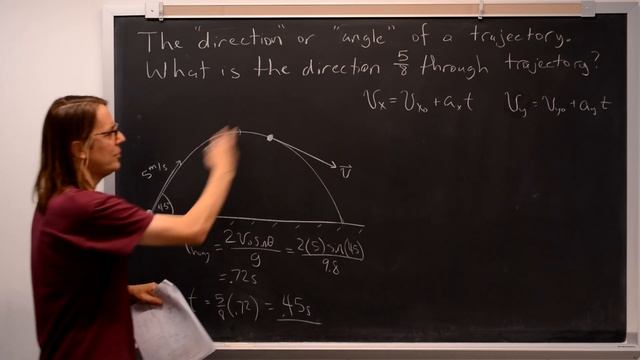 The "direction" or "angle" of a trajectory.
What is the direction 5/8 through trajectory?
Vx = Vx0 + axt Vy = Vy0 + ayt
5 m/s
45
V⃗
= 2V0sinθ/g = 2(5)sin(45)/9.8
= .72s
t = 5/8(.72) = .45s